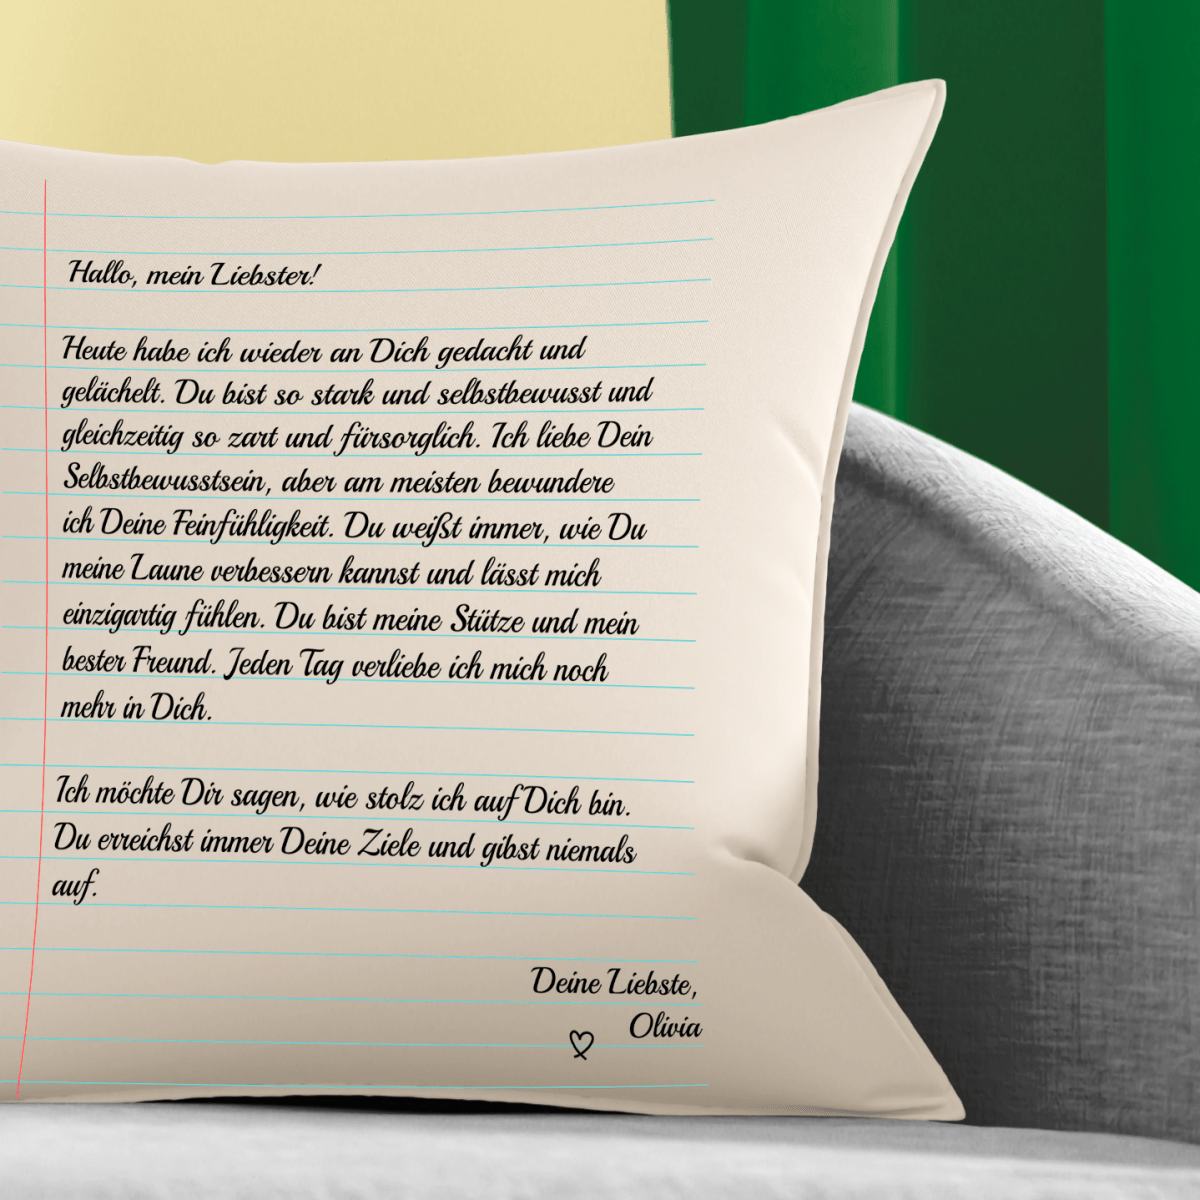 Hallo, mein Liebster!
Heute habe ich wieder an Dich gedacht und
gelächelt. Du bist so stark und selbstbewusst und
gleichzeitig so zart und fürsorglich. Ich liebe Dein
Selbstbewusstsein, aber am meisten bewundere
ich Deine Feinfühligkeit. Du weißt immer, wie Du
meine Laune verbessern kannst und lässt mich
einzigartig fühlen. Du bist meine Stütze und mein
bester Freund. Jeden Tag verliebe ich mich noch
mehr in Dich.
Ich möchte Dir sagen, wie stolz ich auf Dich bin.
Du erreichst immer Deine Ziele und gibst niemals
auf.
Deine Liebste,
Olivia